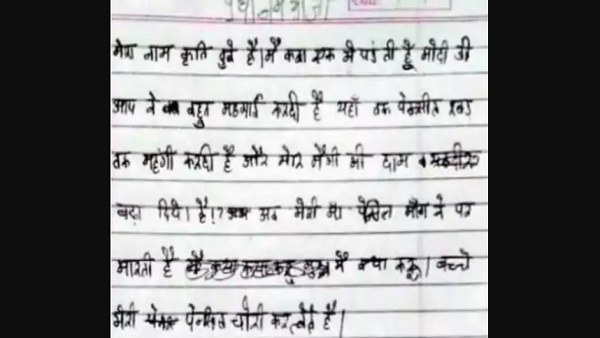 प्रधानमंत्री जी
मेरा नाम कृति दुबे है। मैं कक्षा एक में पढ़ती हूँ मोदी जी
आप ने बहुत महगाई करदी है यहाँ तक पेन्सील रबड़
तक महंगी करदी है और मेरा मैगी की दाम
बढ़ा दिये। है।? अब मेरी मा पेंसिल माँग ने पर
मारती है मैं क्या करू। बच्चे
मेरी पेनसिल चोरी करलेते है।